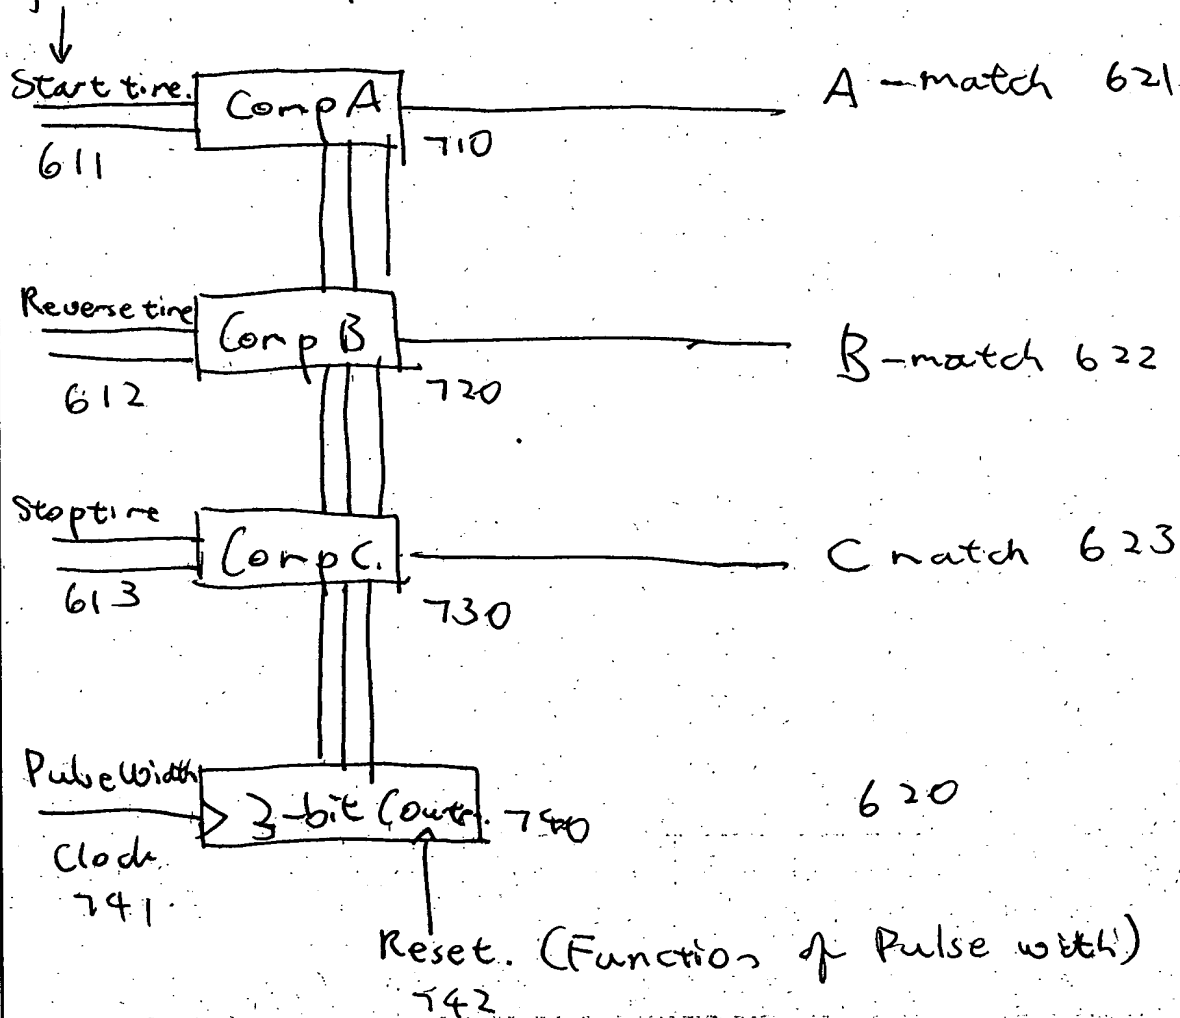 Start time.
Comp A
A-match 621
611
710
Reverse time
Comp B
B-match 622
612
720
Stoptime
Comp C.
C match 623
613
730
Pulse Width
3-bit Counter.
740
620
Clock
741.
Reset. (Function of Pulse width)
742